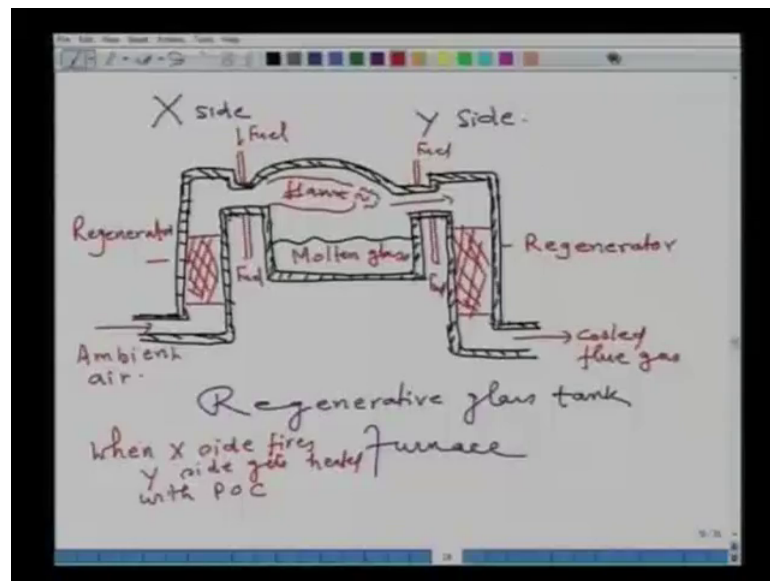 X side
Y Side.
Fuel
Fuel
flame
Regenerator
Regenerator
Molten glass
Fuel
Fuel
Ambient
air.
Cooled
flue gas
Regenerative glass tank
Furnace
When X side fires
Y side gets heated
with POC